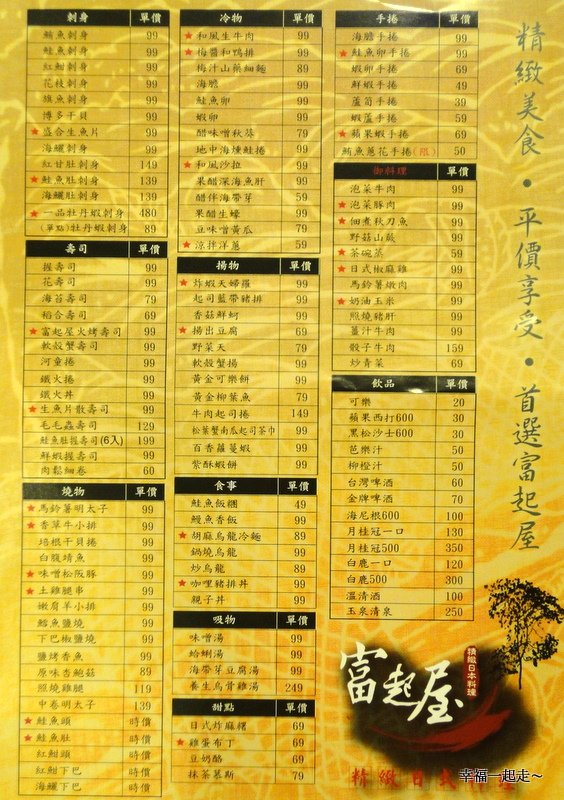 刺身 單價
鮪魚刺身 99
鮭魚刺身 99
紅魽刺身 99
花枝刺身 99
旗魚刺身 99
博多干貝 99
★盛合生魚片 99
海鱺刺身 99
紅甘肚刺身 149
★鮭魚肚刺身 139
海鱺肚刺身 139
★一品牡丹蝦刺身 480
(單點)牡丹蝦刺身 89
壽司 單價
握壽司 99
花壽司 99
海苔壽司 79
稻合壽司 69
★富起屋火烤壽司 99
軟殼蟹壽司 99
河童捲 99
鐵火捲 99
鐵火丼 99
★生魚片散壽司 99
毛毛蟲壽司 129
鮭魚肚握壽司(6入) 199
鮮蝦握壽司 99
肉鬆細卷 60
燒物 單價
★馬鈴薯明太子 99
★香草牛小排 99
培根干貝捲 99
白腹靖魚 99
★味噌松阪豚 99
★土雞腿串 99
嫩肩羊小排 99
鱈魚鹽燒 99
下巴椒鹽燒 99
鹽烤香魚 99
原味杏鮑菇 89
照燒雞腿 119
中卷明太子 139
★鮭魚頭 時價
★鮭魚肚 時價
紅魽頭 時價
紅魽下巴 時價
海鱺下巴 時價
冷物 單價
★和風生牛肉 99
★梅醬和鴨排 99
梅汁山藥細麵 89
海膽 99
鮭魚卵 99
蝦卵 99
醋味噌秋葵 79
地中海燻鮭捲 99
★和風沙拉 99
果醋深海魚肝 99
醋伴海帶芽 59
果醋生蠔 99
豆味噌黃瓜 79
★涼拌洋蔥 59
揚物 單價
★炸蝦天婦羅 99
起司藍帶豬排 99
香菇鮮蚵 99
★揚出豆腐 69
野菜天 79
軟殼蟹揚 99
黃金可樂餅 99
黃金柳葉魚 79
牛肉起司捲 149
松葉蟹南瓜起司茶巾 99
百香蘿蔓蝦 99
紫酥蝦餅 99
食事 單價
鮭魚飯糰 49
鰻魚香飯 99
★胡麻烏龍冷麵 89
鍋燒烏龍 99
炒烏龍 89
★咖哩豬排丼 99
親子丼 99
吸物 單價
味噌湯 99
蛤蜊湯 99
海帶芽豆腐湯 99
養生烏骨雞湯 249
甜點 單價
日式炸麻糬 69
★雞蛋布丁 69
豆奶酪 69
抹茶慕斯 79
手捲 單價
海膽手捲 99
★鮭魚卵手捲 99
蝦卵手捲 69
鮮蝦手捲 49
蘆筍手捲 39
蝦蘆手捲 59
★蘋果蝦手捲 69
鮪魚蔥花手捲(限) 50
御料理 單價
泡菜牛肉 99
★泡菜豚肉 99
★佃煮秋刀魚 99
野菇山蔬 99
★茶碗蒸 59
★日式椒麻雞 99
馬鈴薯燉肉 99
★奶油玉米 99
照燒豬肝 99
薑汁牛肉 99
骰子牛肉 159
炒青菜 69
飲品 單價
可樂 20
蘋果西打600 30
黑松沙士600 30
芭樂汁 50
柳橙汁 50
台灣啤酒 60
金牌啤酒 70
海尼根600 100
月桂冠一口 130
月桂冠500 350
白鹿一口 120
白鹿500 300
溫清酒 100
玉泉清泉 250
精緻美食・平價享受・首選富起屋
富起屋
精緻日本料理
精緻日式
幸福一起走～